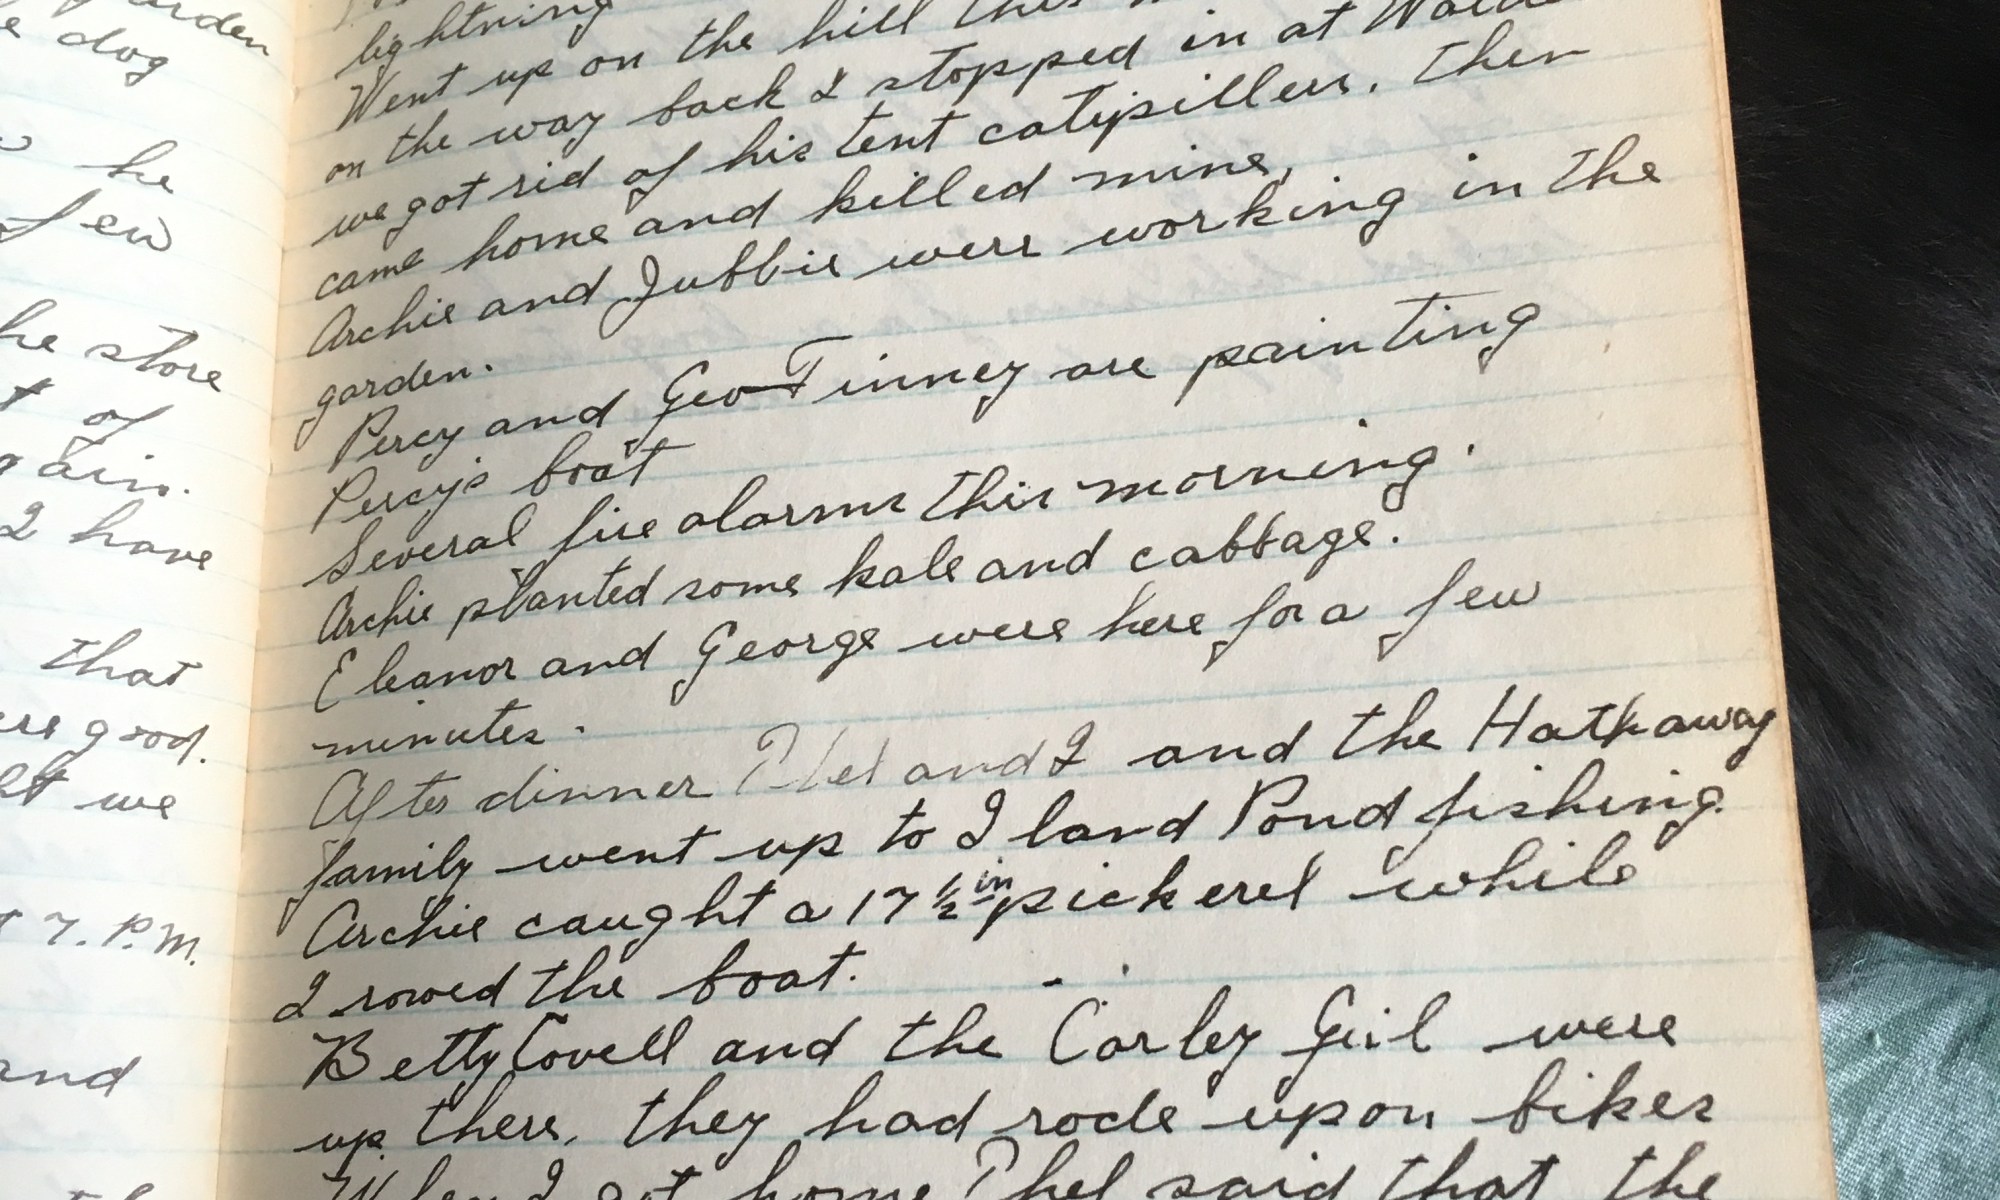 garden
dog
he
few
he store
of
I have
that
good.
we
7. P.M.
and
lightning
Went up on the hill this
on the way back I stopped in at
we got rid of his tent catipillers. Then
came home and killed mine,
Archie and Jubbie were working in the
garden.
Percy and Geo Tinney are painting
Percy's boat
Several fire alarms this morning.
Archie planted some kale and cabbage.
Eleanor and George were here for a few
minutes.
After dinner Phel and I and the Hathaway
family went up to Iland Pond fishing.
Archie caught a 17 1/2 in pickerel while
I rowed the boat.
Betty Covell and the Corley Girl were
up there, they had rode up on bikes
When I got home Phel said that the